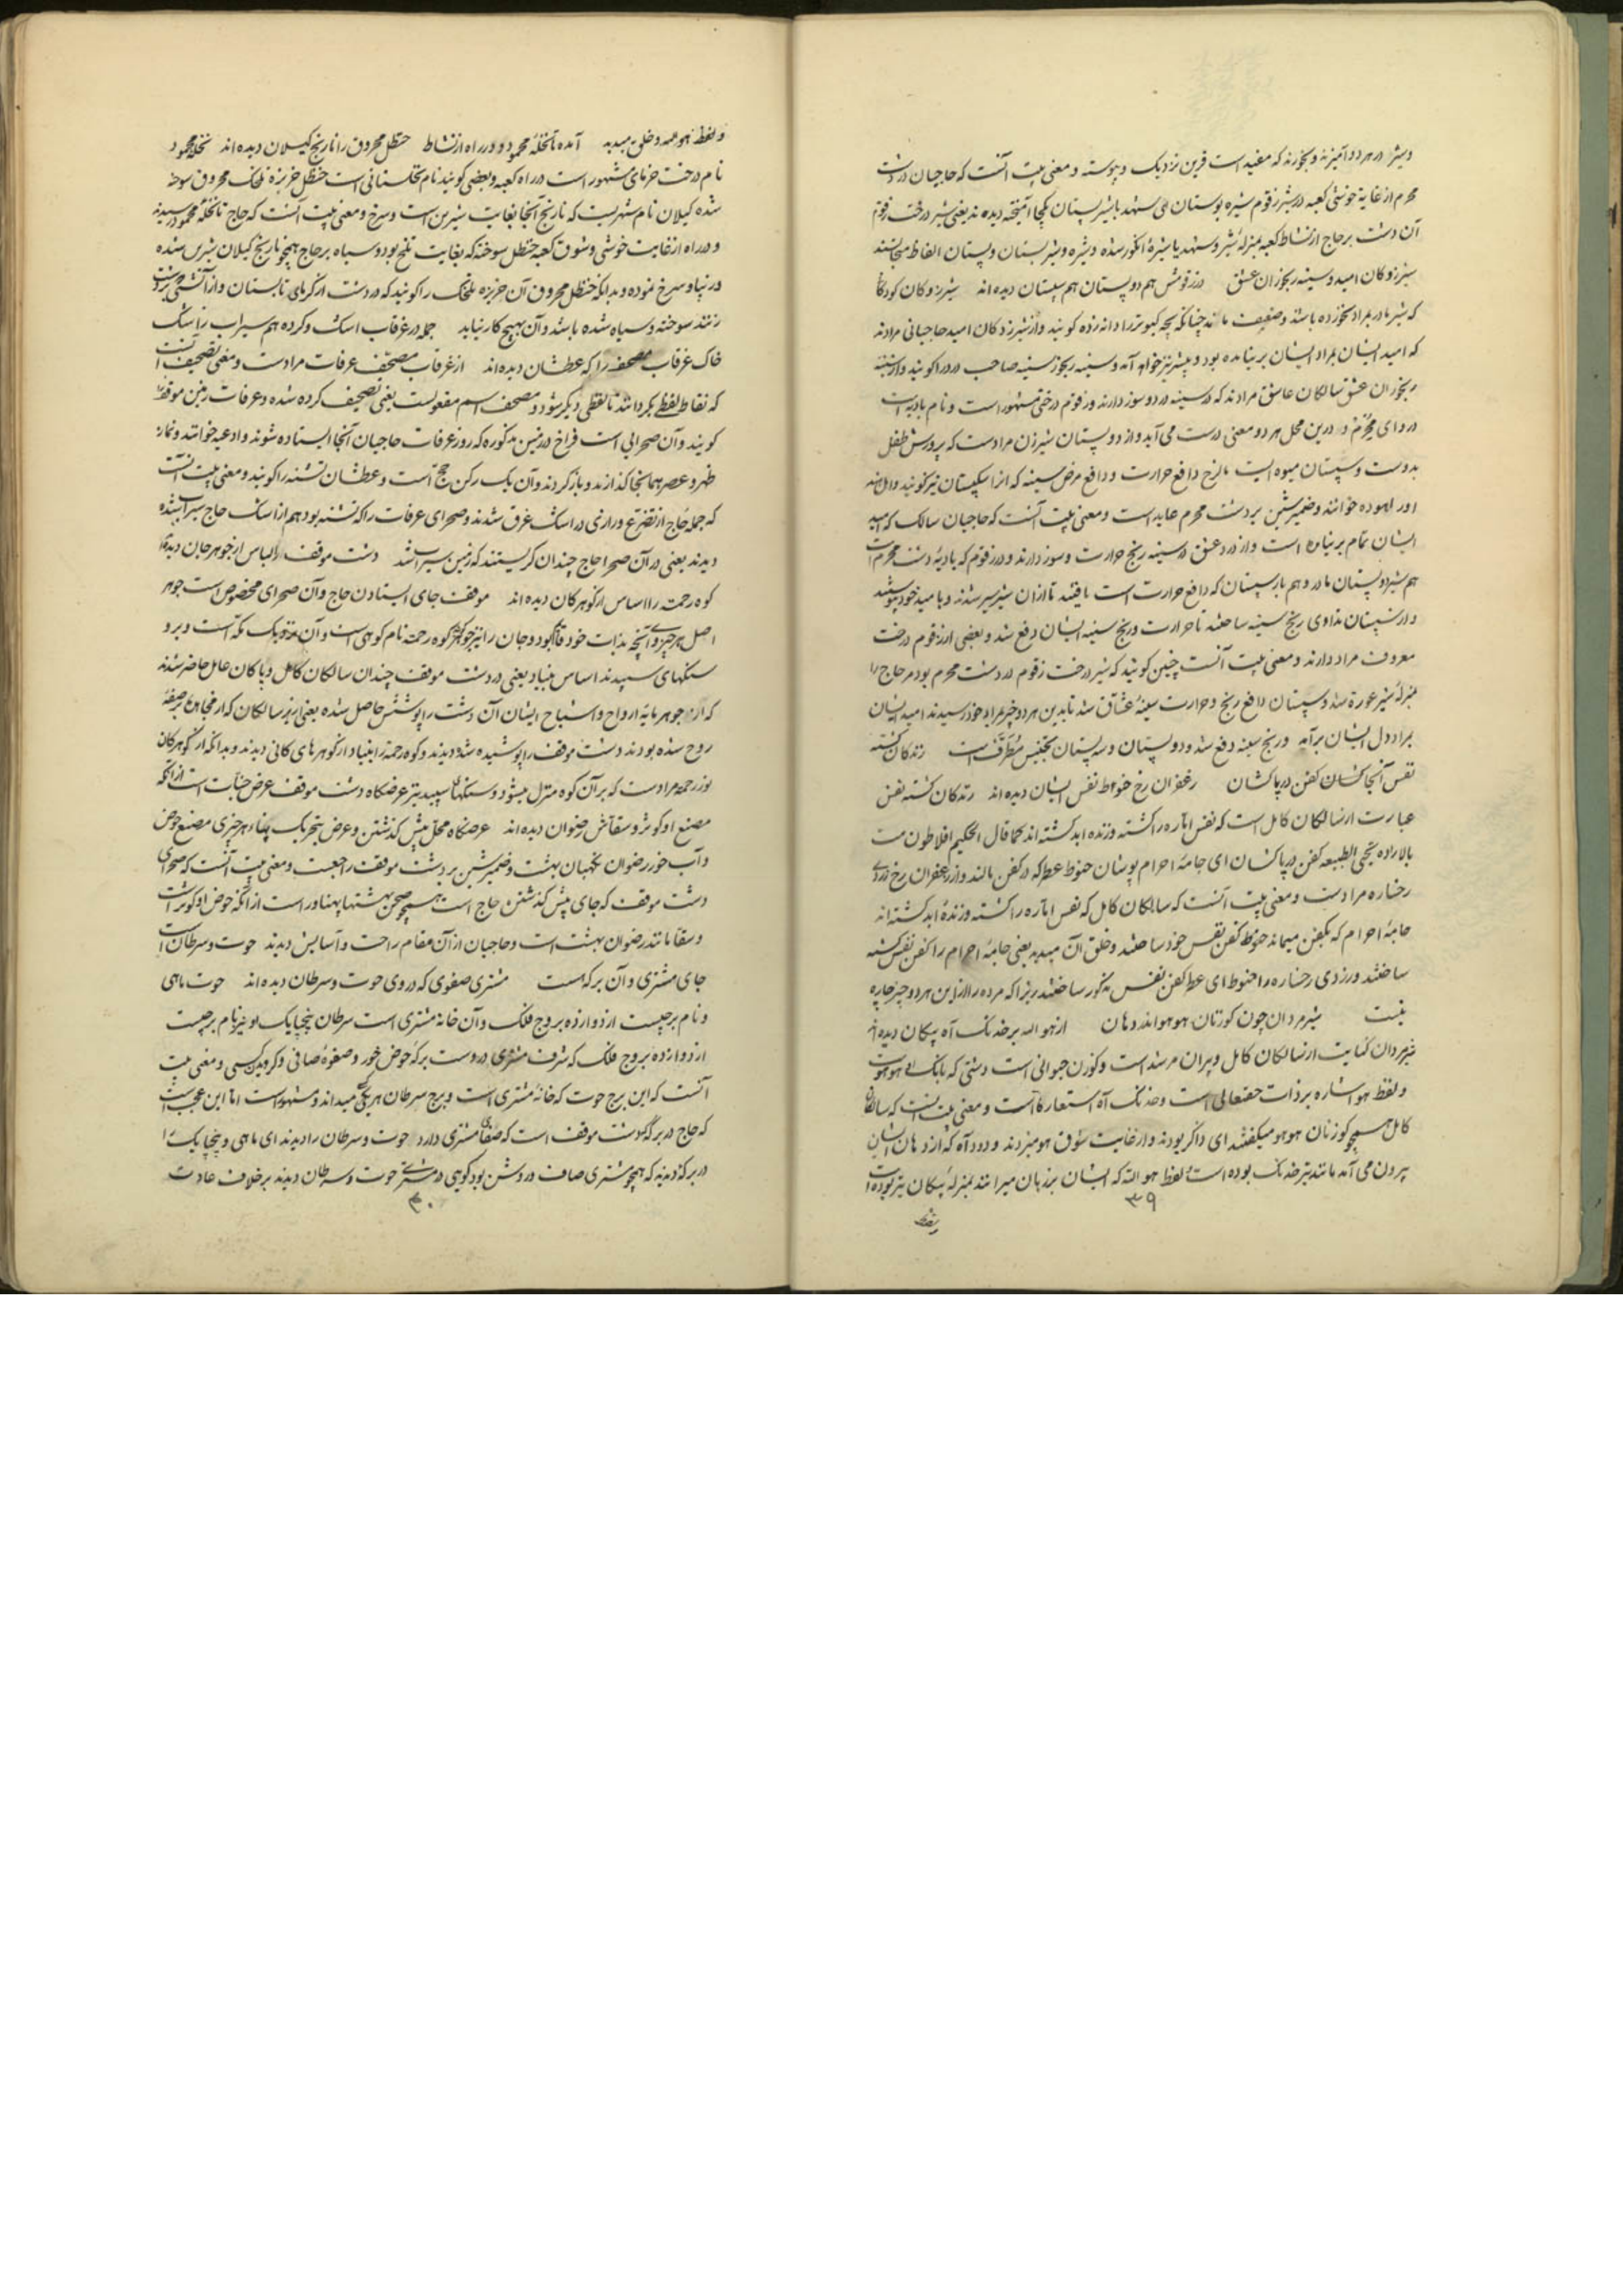 وشیر در هر دو آمیزند و بخورند که مفید است قرین نزدیک و پیوسته و معنی بیت آنست که حاجیان در دشت
محرم از غایة خوشی کعبه در شیر زقوم شیره بوستان می شهد با شیر پستان یکجا آمیخته دیده‌اند یعنی شیر درخت زقوم
آن دشت بر حاج از نشاط کعبه بمنزلهٔ شیر و شهد یا شیرهٔ انگور شده و شیره و شیر بستان و پستان الفاظ متجانسند
شیرزدکان امید و سینه رنجوران عشق در زقومش هم دو پستان هم سپستان دیده‌اند شیرزدکان کودکان
که شیر مادر بمراد نخورده باشند و ضعیف مانند چنانکه بچه کبوتر را دانه زده کویند و از شیرزدکان امید حاجیانی مرادند
که امید ایشان بمراد ایشان برنیامده بود و بیشتر نیز خواهد آمد و سینه رنجور سینه صاحب درد را کویند و از سینه
رنجوران عشق سالکان عاشق مرادند که در سینه درد و سوز دارند و زقوم درختی مشهور است و نام بادیه است
در وای محرم و درین محل هر دو معنی درست می آید و از دو پستان شیر زن مرادست که پرورش طفل
بدوست و سپستان میوه ایست مالزج دافع حرارت و دافع مرض سینه که آنرا سپکستان نیز کویند و اهل هند
اورا لهوده خوانند و ضمیر شین بر دشت محرم عاید است و معنی بیت آنست که حاجیان سالک که امید
ایشان تمام برنیامده است و از درد عشق در سینه رنج حرارت و سوز دارند و در زقوم که بادیهٔ دشت محرم است
هم شیر دو پستان مادر و هم بار سپستان که دافع حرارت است یافتند تا از آن شیر سیر شدند و با امید خود پیوستند
و از سپستان مداوی رنج سینه ساختند تا حرارت و رنج سینه ایشان دفع شد و بعضی از زقوم درخت
معروف مراد دارند و معنی بیت آنست چنین کویند که شیر درخت زقوم در دشت محرم بود مر حاج را
بمنزلهٔ شیر عورة شد و سپستان دافع رنج و حرارت سینهٔ عشاق شد تا بدین هر دو چیز بمراد خود رسیدند امید ایشان
بمراد دل ایشان برآمد و رنج سینه دفع شد و دو پستان و سپستان تجنیس مطرّف است زندکان کشته
نفس آنجا کشان کفن در پا کشان زعفران رخ حنوط نفس ایشان دیده‌اند زندکان کشته نفس
عبارت از سالکان کامل است که نفس اماره را کشته و زنده ابد کشته‌اند کما قال الحکیم افلاطون مت
بالاراده تحیی بالطبیعه کفن در پاکشان ای جامهٔ احرام پوشان حنوط عطر که در کفن مالند و از زعفران رخ زردی
رخساره مرادست و معنی بیت آنست که سالکان کامل که نفس اماره را کشته و زندهٔ ابد کشته‌اند
جامهٔ احرام که بکفن میماند حنوط کفن نفس خود ساختند و خلق آن میدیدند یعنی جامهٔ احرام را کفن نفس کشته
ساختند و زردی رخساره را حنوط ای عطر کفن نفس مذکور ساختند زیرا که مرده را ازین هر دو چیز چاره
نیست شیرمردان چون کوزنان هو هو اندر دهان از هو الله بر خدنک آه پیکان دیده‌اند
شیرمردان کنایت از سالکان کامل و پیران مرشد است و کوزن حیوانی است دشتی که بانک او هو هوست
و لفظ هو اشاره بر ذات حقتعالی است و خدنک آه استعاره است و معنی بیت اینست که سالکان
کامل همچو کوزنان هو هو میکفتند ای ذاکر بودند و از غایت شوق هو میزدند و دود آه که از دهان ایشان
بیرون می آمد مانند تیر خدنک بوده است و لفظ هو الله که ایشان بر زبان میراندند بمنزلهٔ پیکان تیر بوده است
۳۹
و لفظ هو الله و خلق میدید آمده تا نخلهٔ محمود و در راه از نشاط حنظل محروق را نارنج کیلان دیده‌اند نخلهٔ محمود
نام درخت خرمای مشهور است در راه کعبه و بعضی کویند نام نخلستانی است حنظل خربزهٔ تلخک محروق سوخته
شده کیلان نام شهریست که نارنج آنجا بغایت شیرین است و سرخ و معنی بیت آنست که حاج تا نخلهٔ محمود رسیدند
و در راه از غایت خوشی و شوق کعبه حنظل سوخته که بغایت تلخ بود و سیاه بر حاج همچو نارنج کیلان شیرین شده
و زیبا و سرخ نموده و بدانکه حنظل محروق آن خربزه تلخک را کویند که در دشت از کرمای تابستان و از آتشی که در دشت
زنند سوخته و سیاه شده باشد و آن بهیچ کار نیاید جمله در غرقاب اشک و کرده هم سیراب ز اشک
خاک غرقاب مصحّف را که عطشان دیده‌اند از غرقاب مصحّف عرفات مرادست و معنی تصحیف آنست
که نقاط لفظی بکردانند تا لفظی دیکر شود و مصحف اسم مفعولست یعنی تصحیف کرده شده و عرفات زمین موقف را
کویند و آن صحرایی است فراخ در زمین مذکوره که روز عرفات حاجیان آنجا ایستاده شوند و ادعیه خوانند و نماز
ظهر و عصر همانجا کذارند و باز کردند و آن یک رکن حج است و عطشان تشنه را کویند و معنی بیت آنست
که جمله حجاج از تضرع و زاری در اشک غرق شدند و صحرای عرفات را که تشنه بود هم از اشک حاج سیراب شده
دیدند یعنی در آن صحرا حاج چندان کریستند که زمین سیراب شد دشت موقف را لباس از جوهر جان دیده‌اند
کوه رحمت را اساس از کوهر کان دیده‌اند موقف جای ایستادن حاج و آن صحرای مخصوص است جوهر
اصل هر چیزی و آنچه بذات خود قائم بود و جان را نیز جوهر کوه رحمه نام کوهی است و آن نزدیک مکه است و برو
سنکهای سپیدند اساس بنیاد یعنی در دشت موقف چندان سالکان کامل و پاکان عامل حاضر شدند
که از جوهر مایهٔ ارواح و اشباح ایشان آن دشت را پوشش حاصل شده یعنی از بس سالکان که
روح شده بودند دشت موقف را پوشیده شده دیدند و کوه رحمة را بنیاد از کوهرهای کانی دیدند و بدانکه از کوهر کان
نور رحمة مرادست که بر آن کوه منزل میشود و سنکهای سپید نیز عرضکاه دشت موقف عرض جنات است از آنکه
مصنع او کوثر و سقّاش رضوان دیده‌اند عرضکاه محل پیش کذشتن و عرض بتحریک پهناء هر چیزی مصنع حوض
و آب خور رضوان نکهبان بهشت و ضمیر شین بر دشت موقف راجعست و معنی بیت آنست که صحرای
دشت موقف که جای پیش کذشتن حاج است همچو صحن بهشتها پهناور است از آنکه حوض او کوثر است
و سقا مانند رضوان بهشت است و حاجیان از آن مقام راحت و آسایش دیدند حوت و سرطان است
جای مشتری و آن برکه هست مشتری صفوی که در وی حوت و سرطان دیده‌اند حوت ماهی
و نام برجیست از دوازده بروج فلک و آن خانهٔ مشتری است سرطان پنجپایک و نیز نام برجیست
از دوازده بروج فلک که شرف مشتری دروست برکه حوض خورد و صفوة صافی و کزیده کسی و معنی بیت
آنست که این برج حوت که خانهٔ مشتری است و برج سرطان هر یکی میداند و مشهور است اما این عجب است
که حاج در برکهٔ دشت موقف است که صفای مشتری دارد حوت و سرطان را دیدند ای ماهی و پنجپایک را
در برکه دیدند که همچو مشتری صاف و روشن بود کویی در مشتری حوت و سرطان دیدند بر خلاف عادت
۴۰